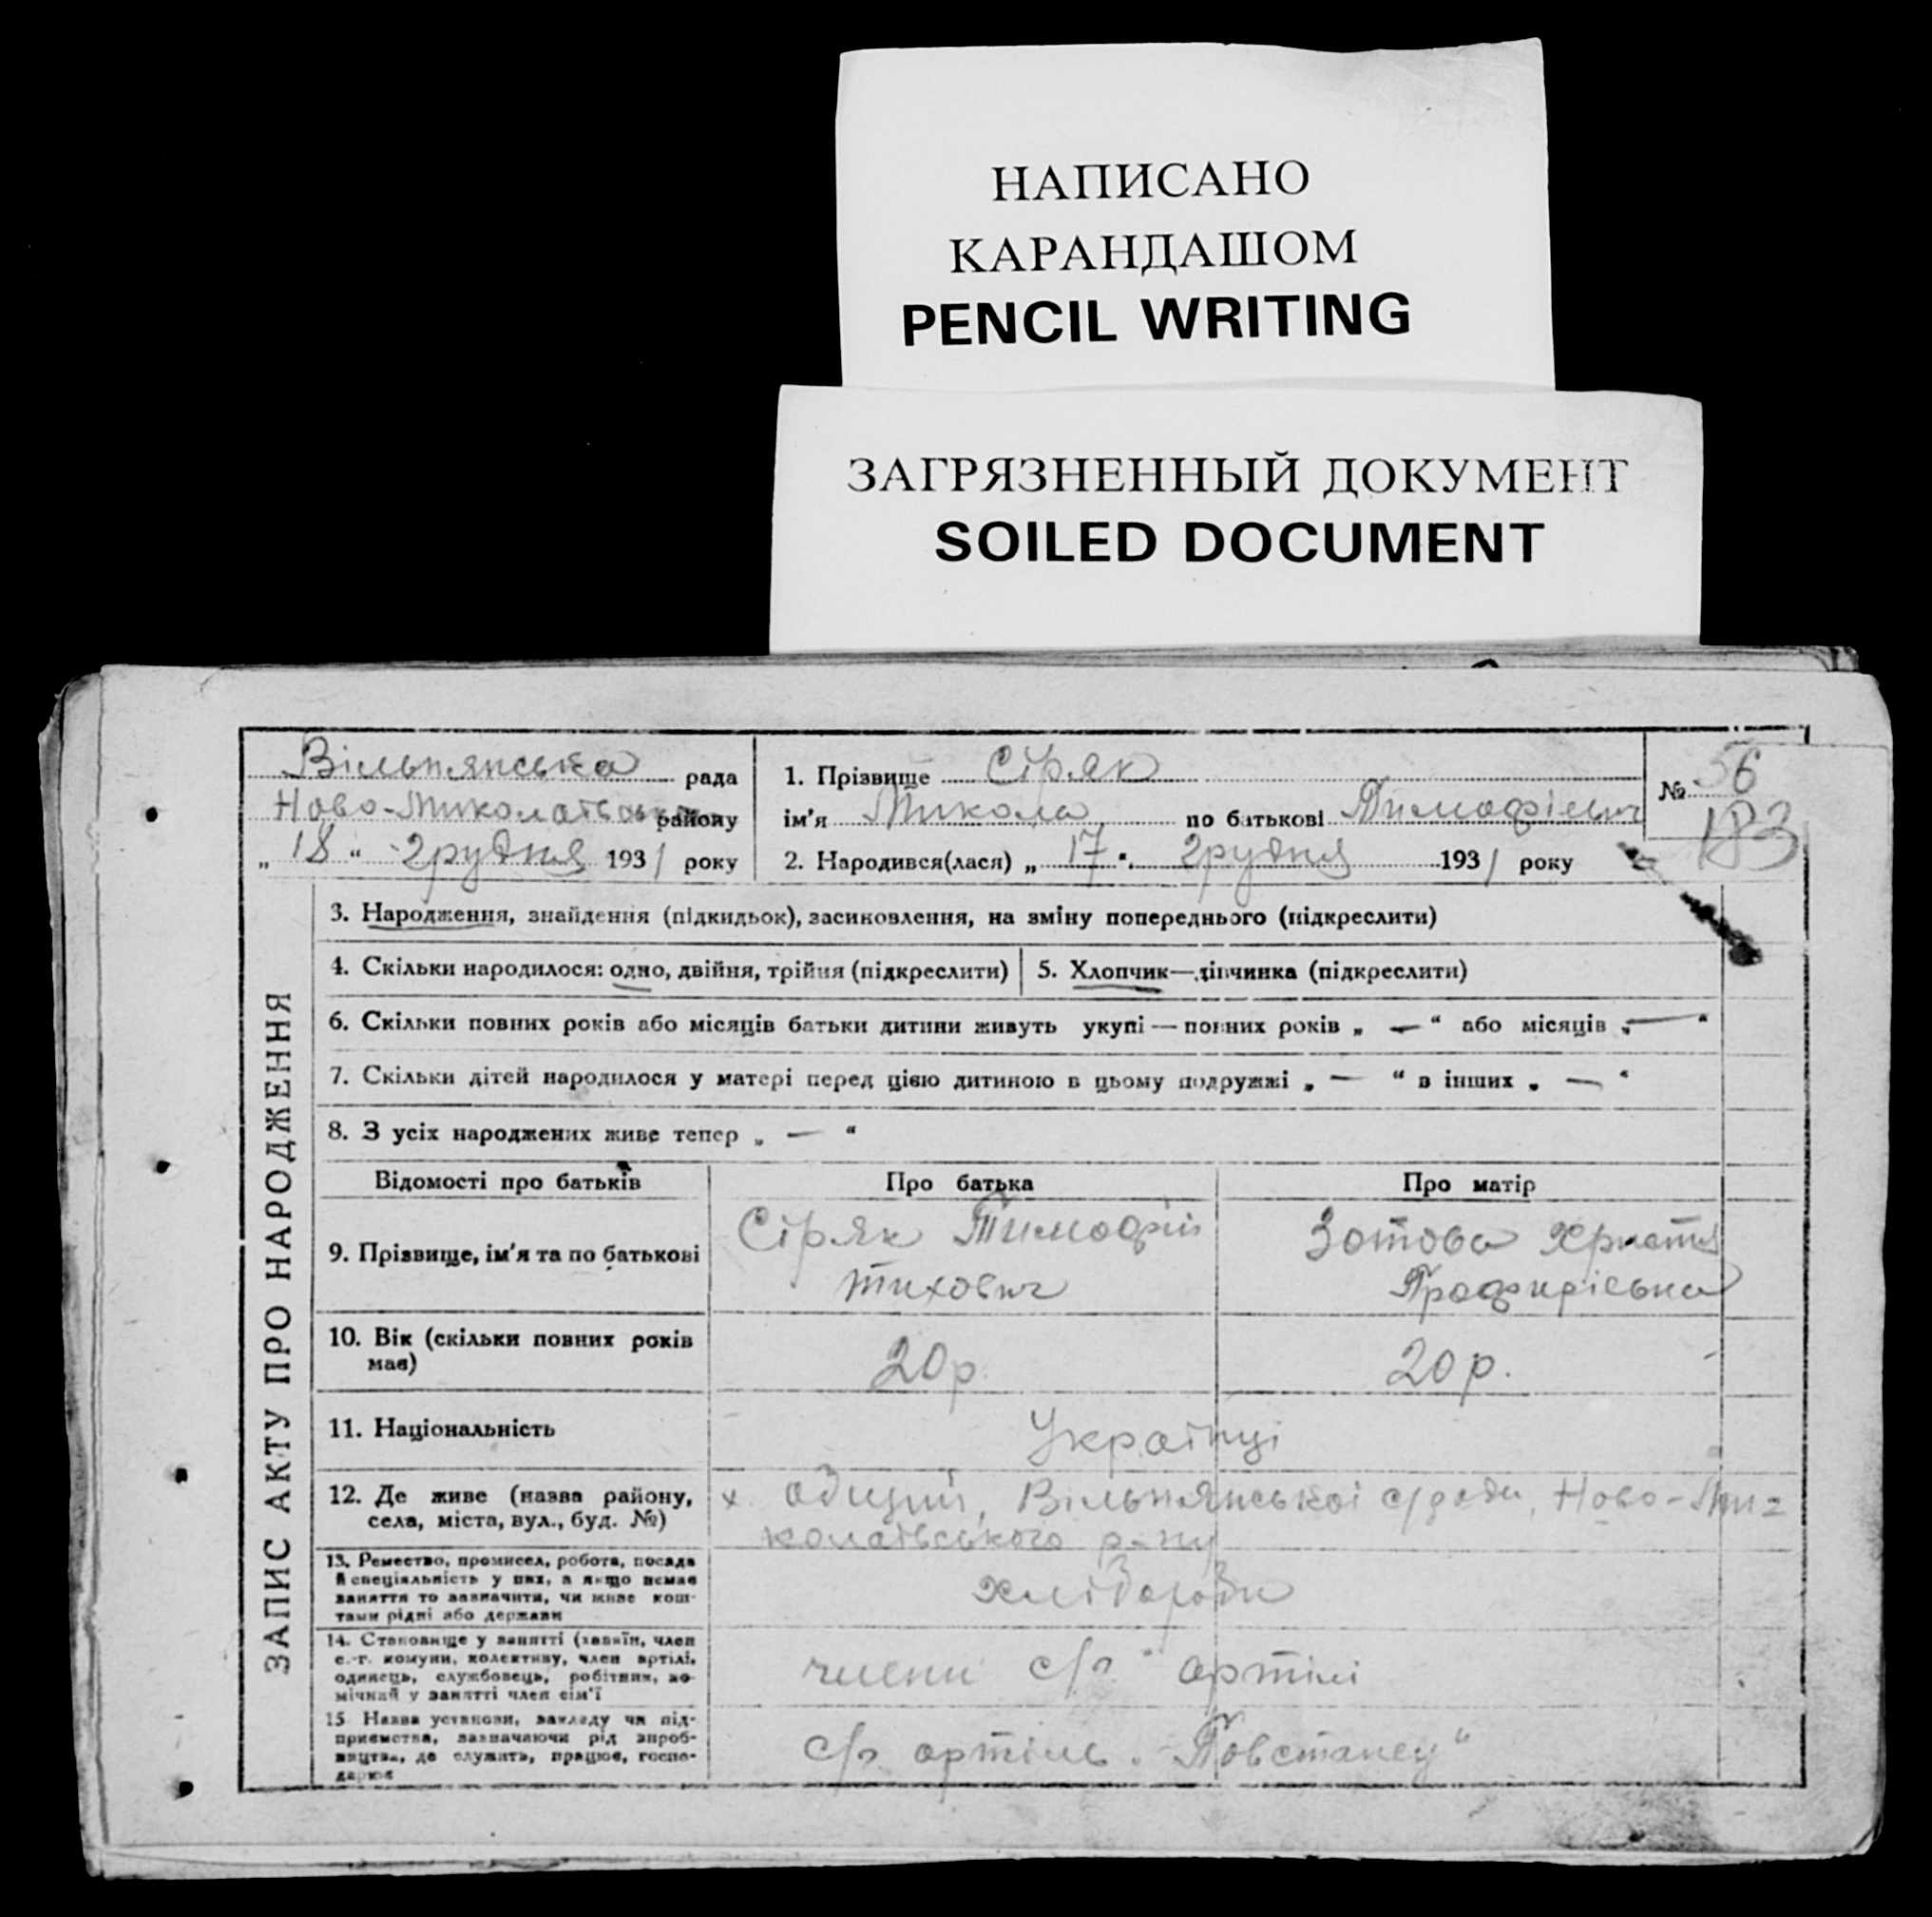 НАПИСАНО
КАРАНДАШОМ
PENCIL WRITING
ЗАГРЯЗНЕННЫЙ ДОКУМЕНТ
SOILED DOCUMENT
Вільнянська рада
Ново-Миколаївськ району
„ 18 “ грудня 1931 року
1. Прізвище Сіряк
ім'я Микола по батькові Тимофієвич
2. Народився(лася) „ 17 “ грудня 1931 року
№ 56
183
ЗАПИС АКТУ ПРО НАРОДЖЕННЯ
3. Народження, знайдення (підкидьок), засиновлення, на зміну попереднього (підкреслити)
4. Скільки народилося: одно, двійня, трійня (підкреслити)
5. Хлопчик—дівчинка (підкреслити)
6. Скільки повних років або місяців батьки дитини живуть укупі — повних років „ — “ або місяців „ — “
7. Скільки дітей народилося у матері перед цією дитиною в цьому подружжі „ — “ в інших „ — “
8. З усіх народжених живе тепер „ — “
Відомості про батьків
Про батька
Про матір
9. Прізвище, ім'я та по батькові
Сіряк Тимофій
Тихович
Зотова Христя
10. Вік (скільки повних років
має)
20 р.
20 р.
11. Національність
Українці
12. Де живе (назва району,
села, міста, вул., буд. №)
х. Вільнянської с/ради, Ново-Ми=
колаївського р-ну
13. Ремество, промисел, робота, посада
й спеціяльність у них, а якщо немає
заняття то зазначити, чи живе кош-
тами рідні або держави
хлібороби
14. Становище у занятті (хазяїн, член
с.-г. комуни, колективу, член артілі,
одинець, службовець, робітник, по-
мічний у занятті член сім'ї
члени с/г. артілі
15 Назва установи, закладу чи під-
приємства, зазначаючи рід вироб-
ництва, де служить, працює, госпо-
дарює
с/г. артіль „Повстанец“